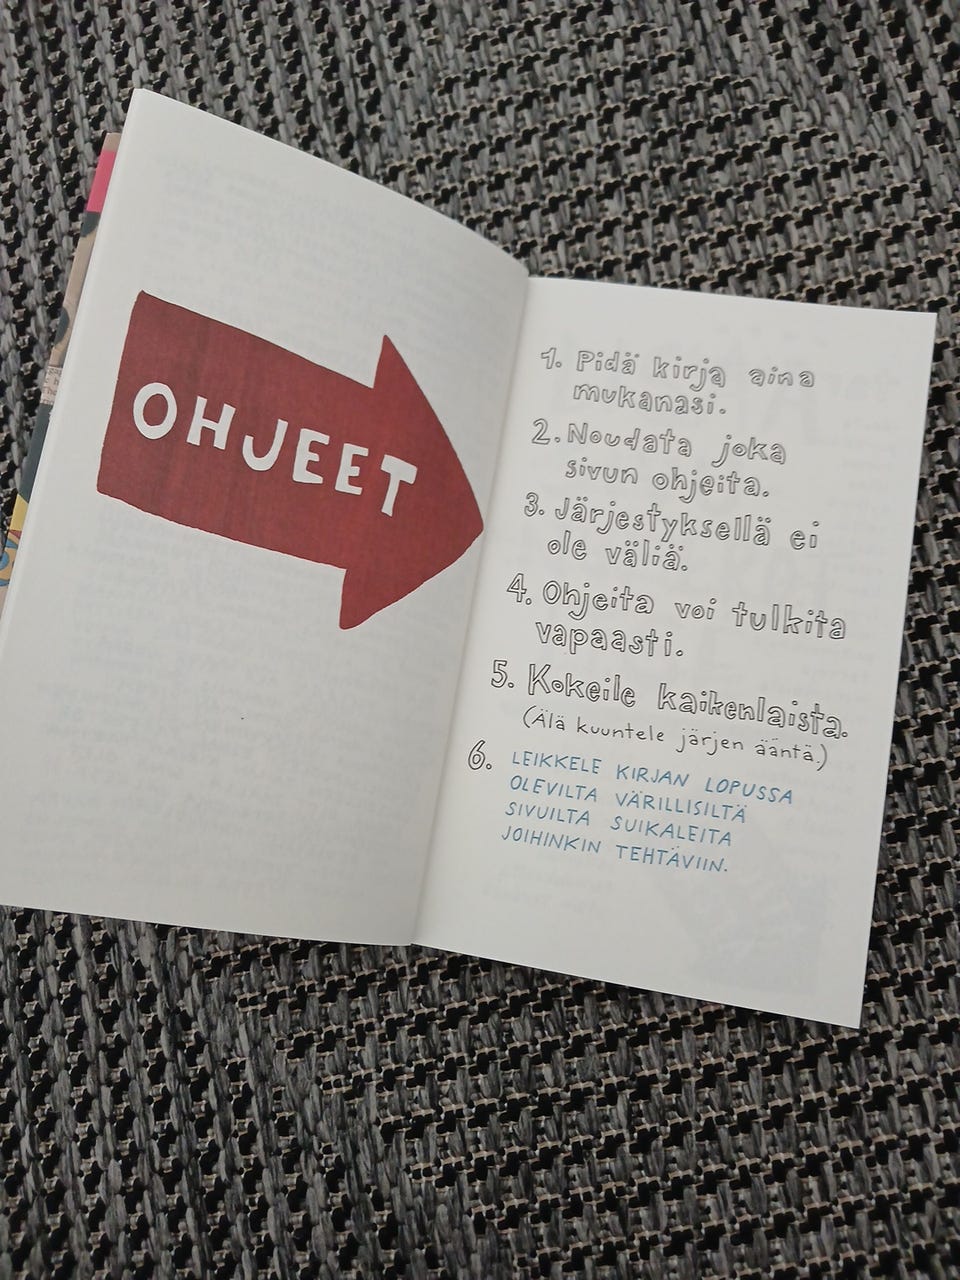 OHJEET
1. Pidä kirja aina
mukanasi.
2. Noudata joka
sivun ohjeita.
3. Järjestyksellä ei
ole väliä.
4. Ohjeita voi tulkita
vapaasti.
5. Kokeile kaikenlaista.
(Älä kuuntele järjen ääntä.)
6. LEIKKELE KIRJAN LOPUSSA
OLEVILTA VÄRILLISILTÄ
SIVUILTA SUIKALEITA
JOIHINKIN TEHTÄVIIN.